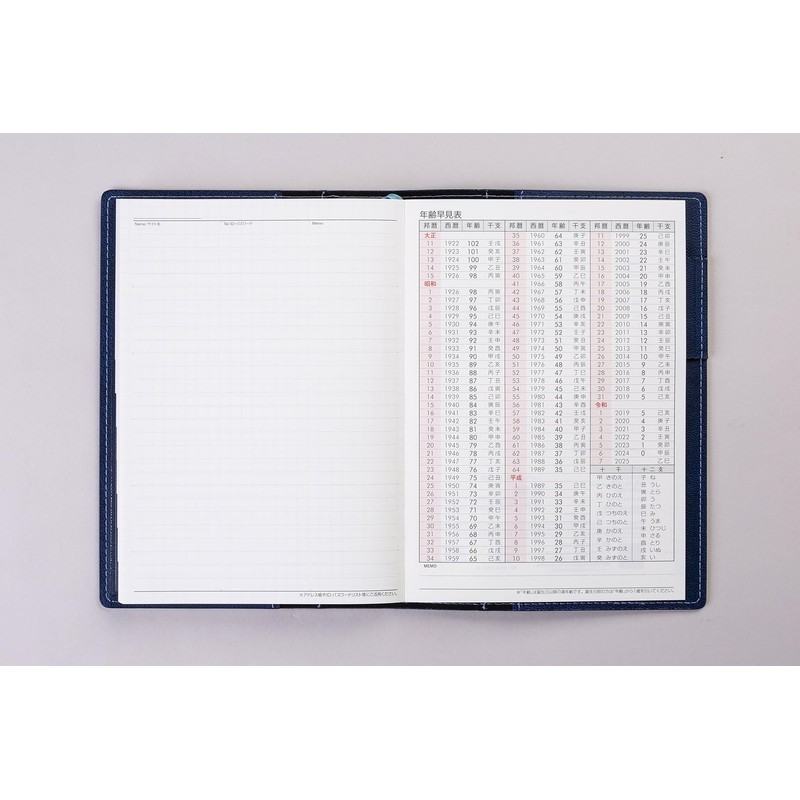 Name/サイト名 No./ID・パスワード Memo
※アドレス帳やID・パスワードリスト等にご活用ください。
年齢早見表
邦暦 西暦 年齢 干支
大正
11 1922 102 壬戌
12 1923 101 癸亥
13 1924 100 甲子
14 1925 99 乙丑
15 1926 98 丙寅
昭和
1 1926 98 丙寅
2 1927 97 丁卯
3 1928 96 戊辰
4 1929 95 己巳
5 1930 94 庚午
6 1931 93 辛未
7 1932 92 壬申
8 1933 91 癸酉
9 1934 90 甲戌
10 1935 89 乙亥
11 1936 88 丙子
12 1937 87 丁丑
13 1938 86 戊寅
14 1939 85 己卯
15 1940 84 庚辰
16 1941 83 辛巳
17 1942 82 壬午
18 1943 81 癸未
19 1944 80 甲申
20 1945 79 乙酉
21 1946 78 丙戌
22 1947 77 丁亥
23 1948 76 戊子
24 1949 75 己丑
25 1950 74 庚寅
26 1951 73 辛卯
27 1952 72 壬辰
28 1953 71 癸巳
29 1954 70 甲午
30 1955 69 乙未
31 1956 68 丙申
32 1957 67 丁酉
33 1958 66 戊戌
34 1959 65 己亥
MEMO
邦暦 西暦 年齢 干支
35 1960 64 庚子
36 1961 63 辛丑
37 1962 62 壬寅
38 1963 61 癸卯
39 1964 60 甲辰
40 1965 59 乙巳
41 1966 58 丙午
42 1967 57 丁未
43 1968 56 戊申
44 1969 55 己酉
45 1970 54 庚戌
46 1971 53 辛亥
47 1972 52 壬子
48 1973 51 癸丑
49 1974 50 甲寅
50 1975 49 乙卯
51 1976 48 丙辰
52 1977 47 丁巳
53 1978 46 戊午
54 1979 45 己未
55 1980 44 庚申
56 1981 43 辛酉
57 1982 42 壬戌
58 1983 41 癸亥
59 1984 40 甲子
60 1985 39 乙丑
61 1986 38 丙寅
62 1987 37 丁卯
63 1988 36 戊辰
64 1989 35 己巳
平成
1 1989 35 己巳
2 1990 34 庚午
3 1991 33 辛未
4 1992 32 壬申
5 1993 31 癸酉
6 1994 30 甲戌
7 1995 29 乙亥
8 1996 28 丙子
9 1997 27 丁丑
10 1998 26 戊寅
邦暦 西暦 年齢 干支
11 1999 25 己卯
12 2000 24 庚辰
13 2001 23 辛巳
14 2002 22 壬午
15 2003 21 癸未
16 2004 20 甲申
17 2005 19 乙酉
18 2006 18 丙戌
19 2007 17 丁亥
20 2008 16 戊子
21 2009 15 己丑
22 2010 14 庚寅
23 2011 13 辛卯
24 2012 12 壬辰
25 2013 11 癸巳
26 2014 10 甲午
27 2015 9 乙未
28 2016 8 丙申
29 2017 7 丁酉
30 2018 6 戊戌
31 2019 5 己亥
令和
1 2019 5 己亥
2 2020 4 庚子
3 2021 3 辛丑
4 2022 2 壬寅
5 2023 1 癸卯
6 2024 0 甲辰
7 2025 乙巳
十干 十二支
甲 きのえ
乙 きのと
丙 ひのえ
丁 ひのと
戊 つちのえ
己 つちのと
庚 かのえ
辛 かのと
壬 みずのえ
癸 みずのと
子 ね
丑 うし
寅 とら
卯 う
辰 たつ
巳 み
午 うま
未 ひつじ
申 さる
酉 とり
戌 いぬ
亥 い